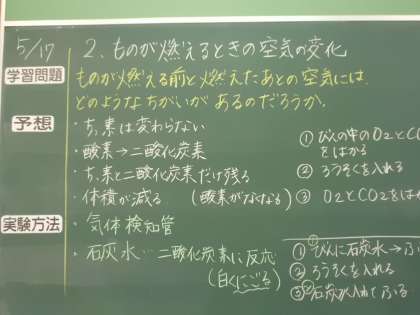 5/17 2. ものが燃えるときの空気の変化
学習問題
ものが燃える前と燃えたあとの空気には、
どのようなちがいがあるのだろうか。
予想
・ちっ素は変わらない
・酸素→二酸化炭素
・ちっ素と二酸化炭素だけ残る
・体積が減る (酸素がなくなる)
① びんの中のO2とCO
をはかる
② ろうそくを入れる
③ O2とCO2をは
実験方法
・気体検知管
・石灰水…二酸化炭素に反応
(白くにごる)
① びんに石灰水→ふ
② ろうそくを入れる
③ 石灰水入れてふる